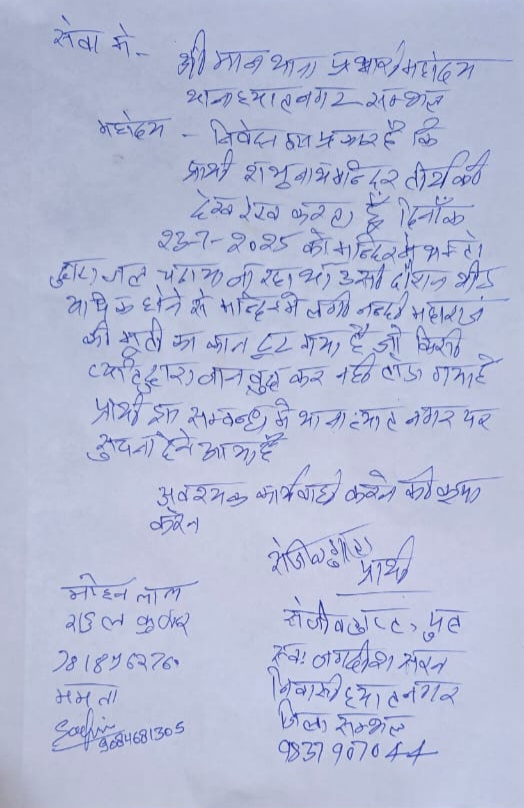 सेवा मे -
श्री मान थाना प्रभारी महोदय
थाना हयातनगर सम्भल
महोदय - निवेदन इस प्रकार है कि
प्रार्थी शम्भुनाथ मन्दिर तीर्थ की
देख रेख करता हूँ दिनाँक
23-7-2025 को मन्दिर मे भक्तो
द्वारा जल चढाया जा रहा था उसी दौरान भीड
अधिक होने से मन्दिर मे लगी नन्दी महाराज
की मूर्ती का कान टूट गया है जो किसी
व्यक्ति द्वारा जान बुझ कर नही तोडा गया है
प्रार्थी इस सम्बन्ध मे थाना हयातनगर पर
सुचना देने आया है
अवश्यक कार्यवाही करने की कृपा
करेन
संजीव गुप्ता
प्रार्थी
संजीव गुप्ता, पुत्र
स्वः जगदीश सरन
निवासी हयातनगर
जिला सम्भल
9837907044
मोहन लाल
राहुल कुमार
ममता
9684681305